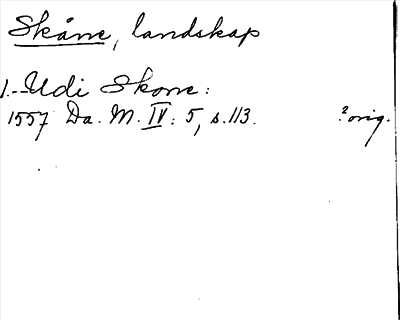 Skåne, landskap
1.- Udi Skone:
1557 Da. M. IV: 5, s. 113. ? orig.